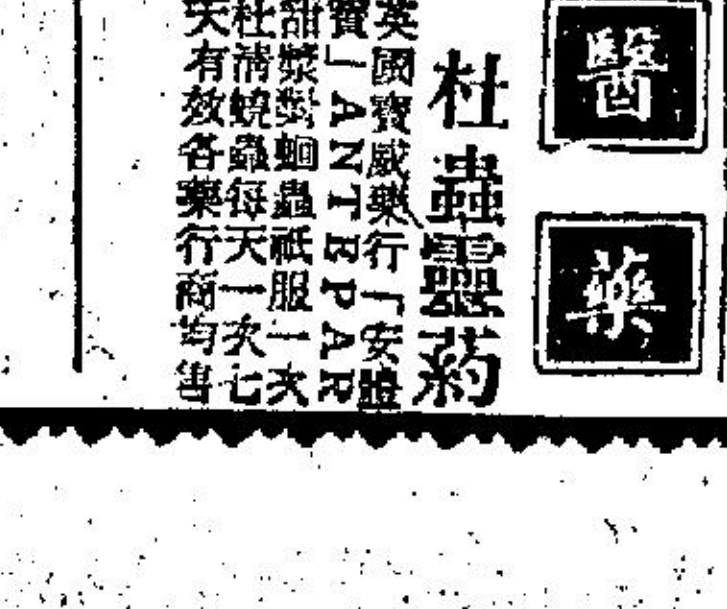 醫藥
杜蟲靈葯
英國寶威藥行「安體
寶」ANTEPAR
甜漿對蛔蟲祇服一次
杜清蟯蟲每天一次七
天有效各藥行商均售